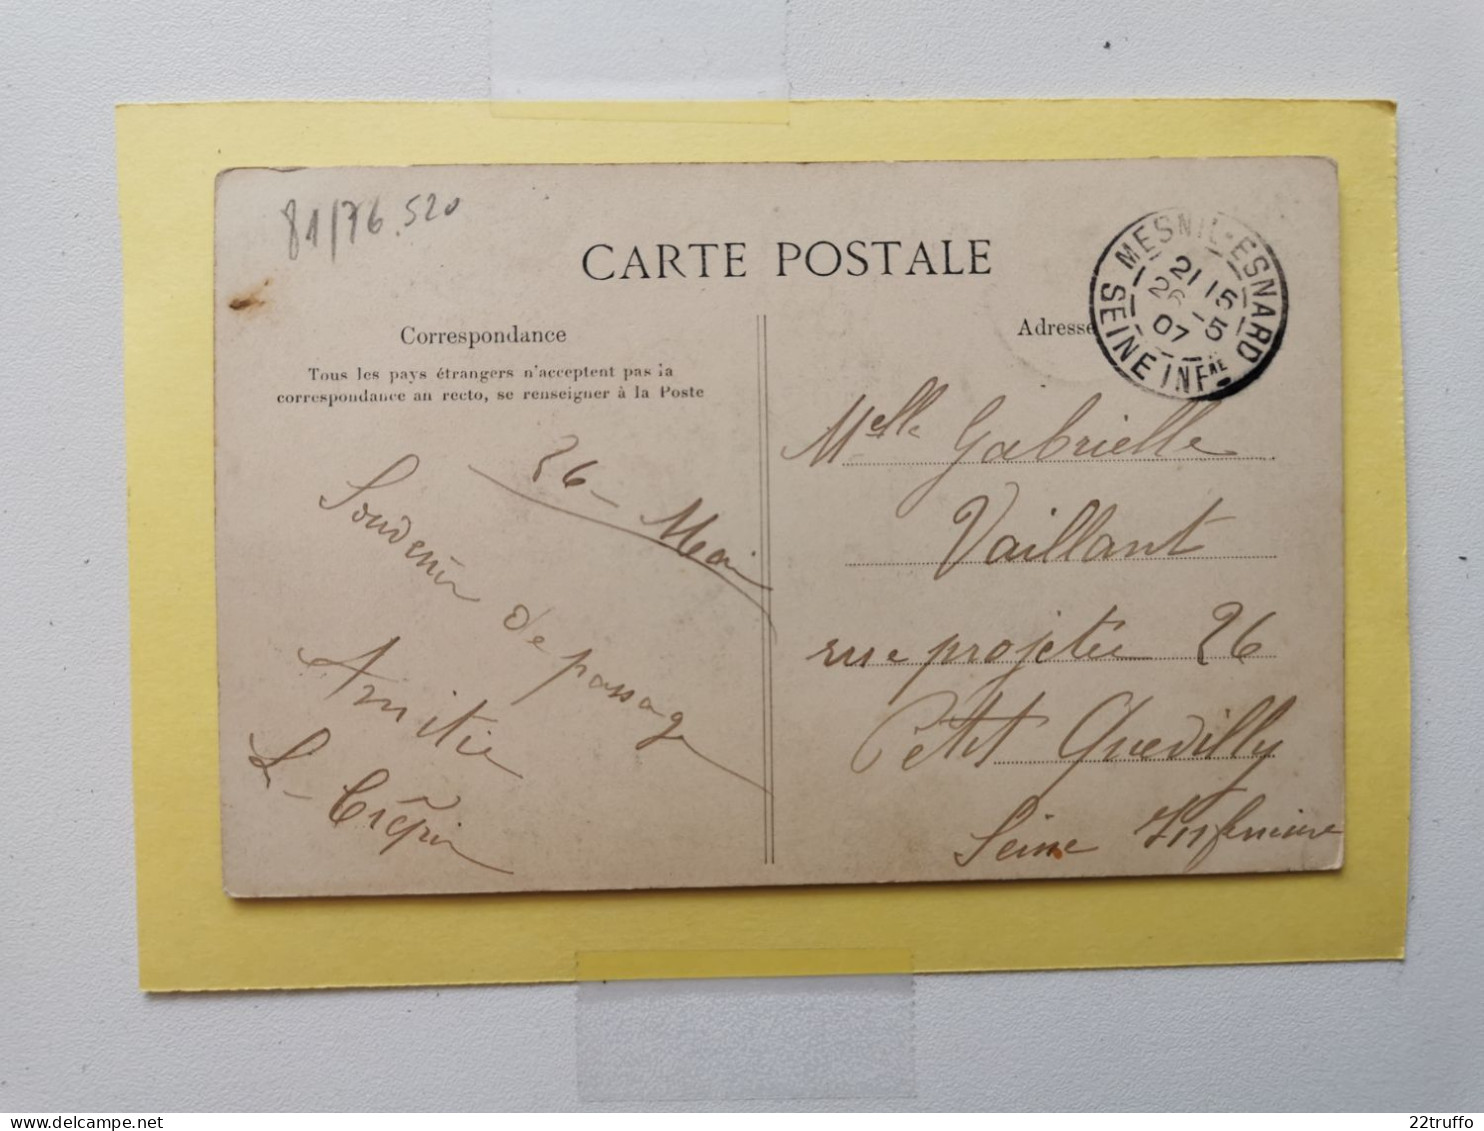 81/76.520
CARTE POSTALE
MESNIL-ESNARD
21 15
26 - 5
07
SEINE INFRE
Correspondance
Tous les pays étrangers n'acceptent pas la
correspondance au recto, se renseigner à la Poste
26 - Mai
Souvenir de passage
Amitié
L. Crépin
Adresse
Melle Gabrielle
Vaillant
rue projetée 26
Petit Quevilly
Seine Inférieure
22truffo